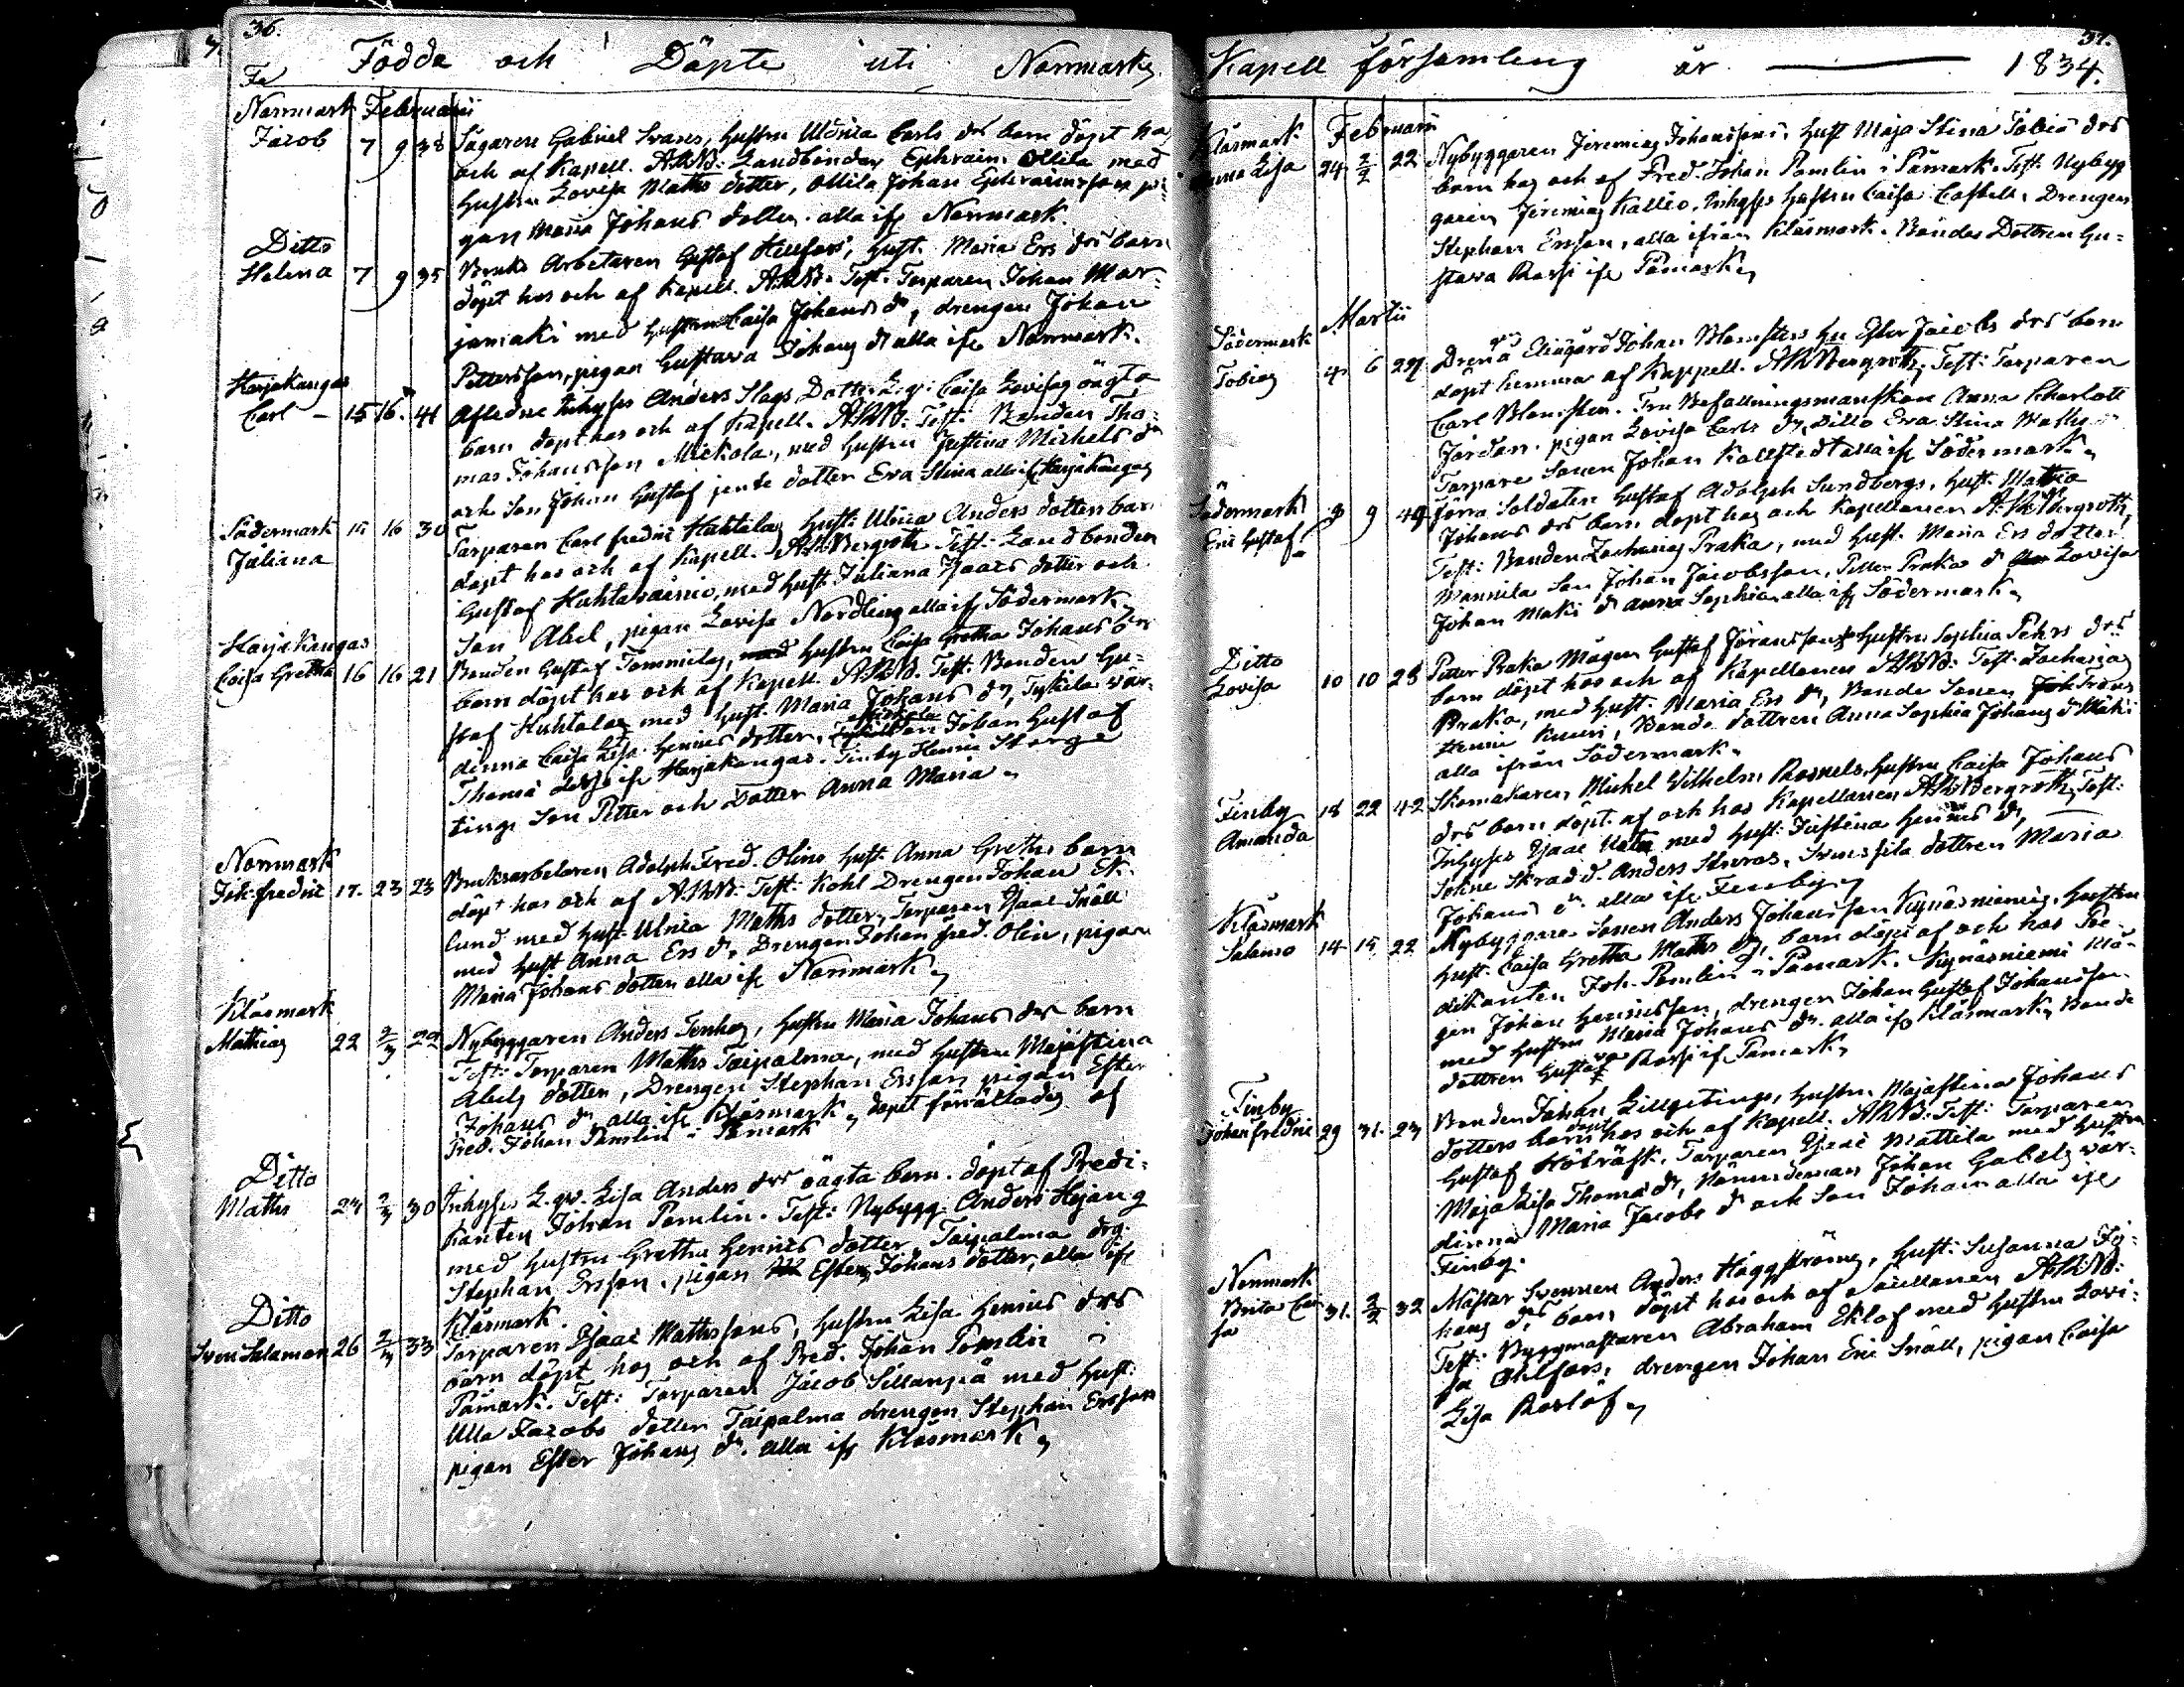 36.
Födde och Döpte uti Norrmarks
Norrmark Februarii
Jacob 7 9 38 Sågaren Gabriel Svares, hustru Ulrica Carls drs barn döpt hos
och af Kapell. AWB: Landbonden Ephraim Ollila med
hustru Lovisa Maths dotter, Ollila Johan Ephraimsson pi-
gan Maria Johans dotter. alla ifr Norrmark.
Ditto
Helena 7 9 35 Bruks Arbetaren Gustaf Hellfors, hust. Maria Ers drs barn
döpt hos och af Kapell. AWB. Test. Torparen Johan Mar-
jamäki med hustru Caisa Johans dr, drengen Johan
Pettersson, pigan Gustava Johans dr alla ifr Norrmark.
Harjakangas
Carl 15 16. 41 Afledne Inhyses Anders Slags Dotter L.qv: Caisa Lovisas oägta
barn döpt hos och af Kapell. AWB: Test: Bonden Tho-
mas Johansson Mickola, med hustru Justina Michels dr
och Son Johan Gustaf jemte dotter Eva Stina alla ifr Harjakangas
Södermark 15 16 30 Torparen Carl Fredric Huhtalas hust: Ulrica Anders dotters barn
Juliana
döpt hos och af Kapell. AWBergroth Test: Landbonden
Gustaf Huhtavainio, med hust. Juliana Isaacs dotter och
Son Abel, pigan Lovisa Nordling alla ifr Södermark
Harjakangas
Caisa Gretha 16 16 21 Bonden Gustaf Tommilas, hustru Caisa Gretha Johans drs
barn döpt hos och af Kapell. AWB. Test. Bonden Gu-
staf Huhtala med hust. Maria Johans dr, Tykila vär-
dinna Caisa Lisa Henrics dotter, Johan Gustaf
Thomæ ifr Harjakangas. Finby Henric Storge
tings Son Petter och Dotter Anna Maria
Norrmark
Joh: Fredric 17. 23 23 Bruksarbetaren Adolph Fred. Olins hust. Anna Grethas barn
döpt hos och af AWB: Test: Kohl Drengen Johan Ek-
lund med hust. Ulrica Maths dotter, Torparen Isaac Snäll
med hust Anna Ers dr, Drengen Johan Fred. Olin, pigan
Maria Johans dotter alla ifr Norrmark
Klåsmark
Mathias 22 2/3 29 Nybyggaren Anders Tenhos, hustru Maria Johans drs barn
Test: Torparen Maths Taipalma, med hustru Maja Stina
Abels dotter, Drengen Stephan Ersson pigan Ester
Johans dr. alla ifr Klåsmark, döpt förrättades af
Pred. Johan Pamlin i Påmark
Ditto
Maths 24 2/3 30 Inhyses L.qv. Lisa Anders drs oägta barn. döpt af Predi-
kanten Johan Pamlin. Test: Nybygg: Anders
med hustru Gretha Henrics dotter Taipalma drg.
Stephan Ersson. pigan Ester Johans dotter, alla ifr
Klåsmark.
Ditto
Sven Salamon 26 2/3 33 Torparen Isaac Mathssons, hustru Lisa Henrics drs
barn döpt hos och af Pred. Johan Pamlin i
Påmark. Test: Torparen Jacob Sillanpää med hust:
Ulla Jacobs dotter Taipalma drengen Stephan Ersson
pigan Ester Johans dr. alla ifr Klåsmark
37.
Kapell församling år 1834.
Klåsmark Februarii
Anna Lisa 24 2/2 22 Nybyggaren Jeremias Johanssons, hust Maja Stina Tobiæ drs
barn hos och af Pred. Johan Pamlin i Påmark. Test: Nybyg
garen Jeremias Kallio. Inhyses hustru Caisa Drengen
Stephan Ersson, alla ifrån Klåsmark. Bondes Dottren Gu-
stava Rossi ifr Påmark
Martii
Södermark
Tobias 4 6 29 Johan Blomsters hu Ester Jacobs drs barn
döpt hemma af Kappell. AWBergroth, Test: Torparen
Carl Blomster. Fru Befallningsmanskan Anna Charlott
Jordan. pigan Lovisa Carls dr, Ditto Eva Stina Maths
Torpare Sonen Johan Kallstedt alla ifr Södermark
Södermark 8 9 49 Förra Soldaten Gustaf Adolph Sundbergs, hust. Mathia
Eric Gustaf
Johans drs barn döpt hos och Kapellanen AWBergroth,
Test: Bonden Zacharias Praka, med hust. Maria Ers dotter
Mannila Son Johan Jacobsson, Petter Praka dr Lovisa
Johan Maki dr Anna Sophia, alla ifr Södermark
Ditto
Lovisa 10 10 28 Petter Praka Mågen Gustaf Göranssons hustru Sophia Pehrs drs
barn döpt hos och af Kapellanen AWB: Test: Zacharias
Praka, med hust. Maria Ers dr, Bonde Sonen
Henric Knuri, Bonde dottren Anna Sophia Johans dr Mäki
alla ifrån Södermark
Finby 18 22 42 Skomakaren Michel Vilhelm Rosnels, hustru Caisa Johans
Amanda
drs barn döpt af och hos Kapellanen AWBergroth, Test:
Inhyses Isaac med hust: Justina Henrics dr,
Sokne Skradd. Anders Storas, dottren Maria
Johans dr. alla ifr Finby
Klåsmark
Salomo 14 15 22 Nybyggare Sonen Anders Johansson Kynäsniemis, hustru
hust. Caisa Gretha Maths drs, barn döpt af och hos Pre
dikanten Joh. Pamlin i Påmark. Kynäsniemi Må-
gen Johan Henricsson, drengen Johan Gustaf Johansson
med hustru Maria Johans dr. alla ifr Klåsmark, Bonde
dottren Gustava Rossi if. Påmark
Finby
Johan Fredric 29 31. 23 Bonden Johan Lillgetings, hustru Maja Stina Johans
dotters barn döpt hos och af Kapell. AWB: Test: Torparen
Gustaf Torparen Isaac Mattila med hustru
Maja Lisa Thomæ dr, Nämndeman Johan Gabels vär-
dinna Maria Jacobs dr och Son Johan alla ifr
Finby.
Norrmark
Brita Cai 31. 2/2 32 Mästar Svennen Anders Häggströms, hust: Susanna Jo-
sa
hans drs barn döpt hos och af AWB:
Test: Byggmästaren Abraham Eklöf med hustru Lovi-
sa Ahlfors, drengen Johan Eric Snäll, pigan Caisa
Lisa Roslöf